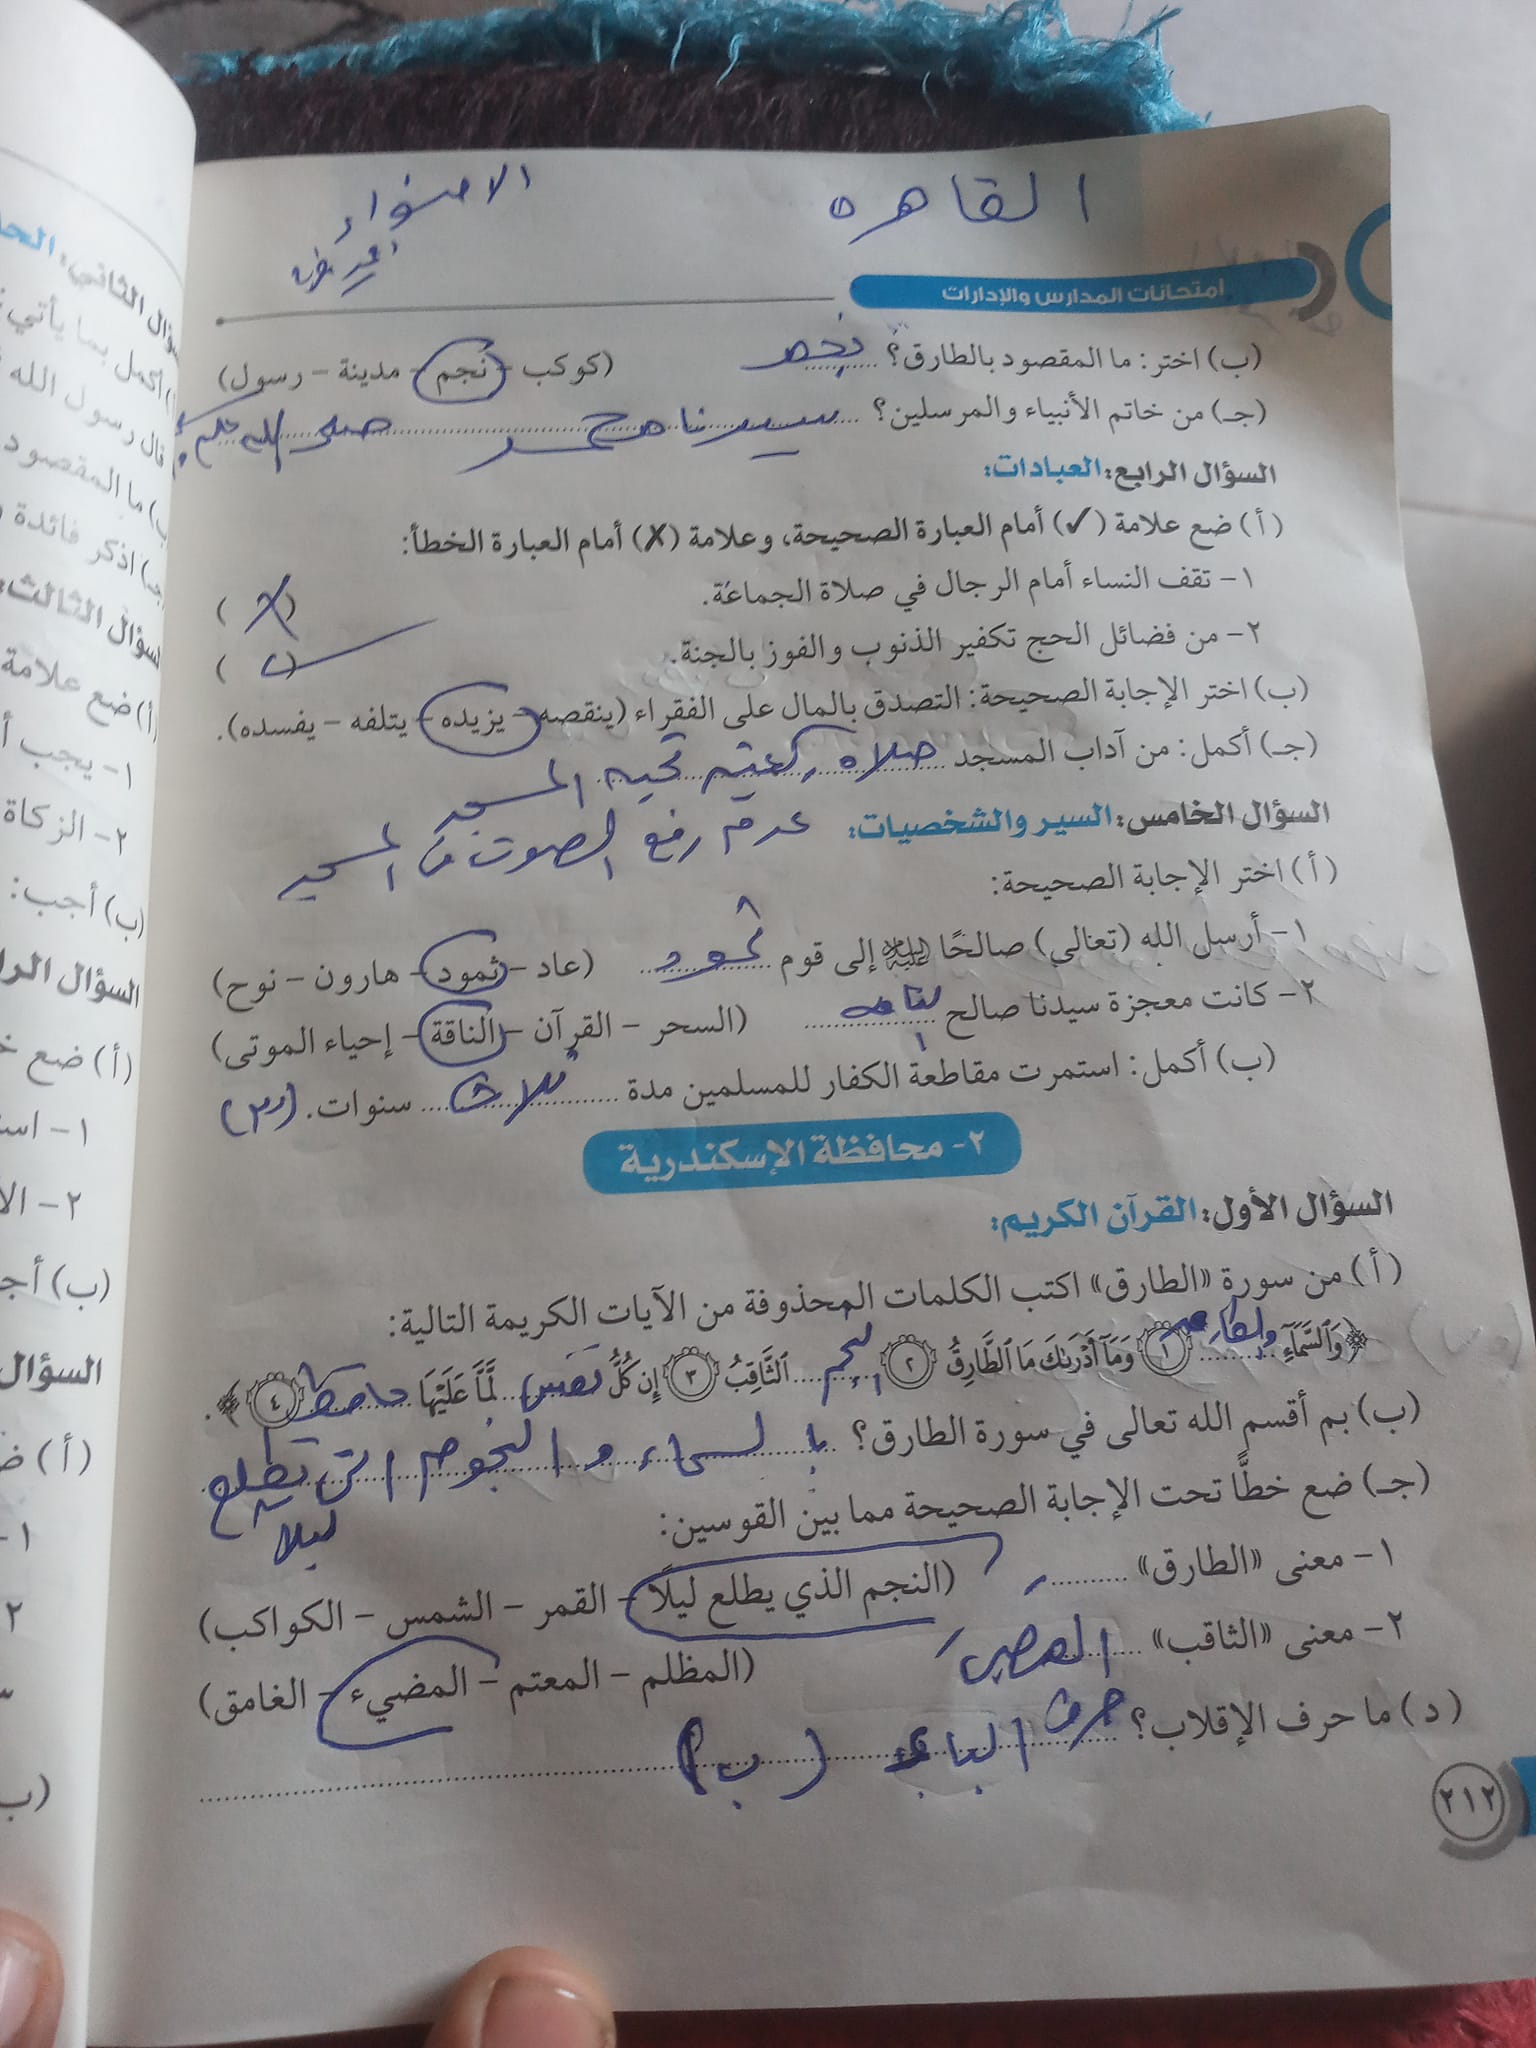 القاهره
الاضواء
امتحانات المدارس والإدارات
(ب) اختر: ما المقصود بالطارق؟ نجم (كوكب - نجم - مدينة - رسول)
(جـ) من خاتم الأنبياء والمرسلين؟ سيدنا محمد صلى الله عليه
السؤال الرابع: العبادات:
(أ) ضع علامة (✓) أمام العبارة الصحيحة، وعلامة (✗) أمام العبارة الخطأ:
١- تقف النساء أمام الرجال في صلاة الجماعة. (✗)
٢- من فضائل الحج تكفير الذنوب والفوز بالجنة. (✓)
(ب) اختر الإجابة الصحيحة: التصدق بالمال على الفقراء (ينقصه - يزيده - يتلفه - يفسده).
(جـ) أكمل: من آداب المسجد صلاه ركعتين تحيه المسجد
السؤال الخامس: السير والشخصيات: عدم رفع الصوت في المسجد
(أ) اختر الإجابة الصحيحة:
١- أرسل الله (تعالى) صالحًا عليه السلام إلى قوم ثمود (عاد - ثمود - هارون - نوح)
٢- كانت معجزة سيدنا صالح الناقه (السحر - القرآن - الناقة - إحياء الموتى)
(ب) أكمل: استمرت مقاطعة الكفار للمسلمين مدة ثلاث سنوات. (٣)
٢- محافظة الإسكندرية
السؤال الأول: القرآن الكريم:
(أ) من سورة «الطارق» اكتب الكلمات المحذوفة من الآيات الكريمة التالية:
﴿وَٱلسَّمَآءِ والطارق ١ وَمَآ أَدْرَىٰكَ مَا ٱلطَّارِقُ ٢ النجم ٱلثَّاقِبُ ٣ إِن كُلُّ نفس لَّمَّا عَلَيْهَا حافظ ٤﴾.
(ب) بم أقسم الله تعالى في سورة الطارق؟ بالسماء والنجوم التي تطلع
ليلا
(جـ) ضع خطًّا تحت الإجابة الصحيحة مما بين القوسين:
١- معنى «الطارق» ........ (النجم الذي يطلع ليلًا - القمر - الشمس - الكواكب)
٢- معنى «الثاقب» المضيء (المظلم - المعتم - المضيء - الغامق)
(د) ما حرف الإقلاب؟ حرف الباء (ب)
٢١٢